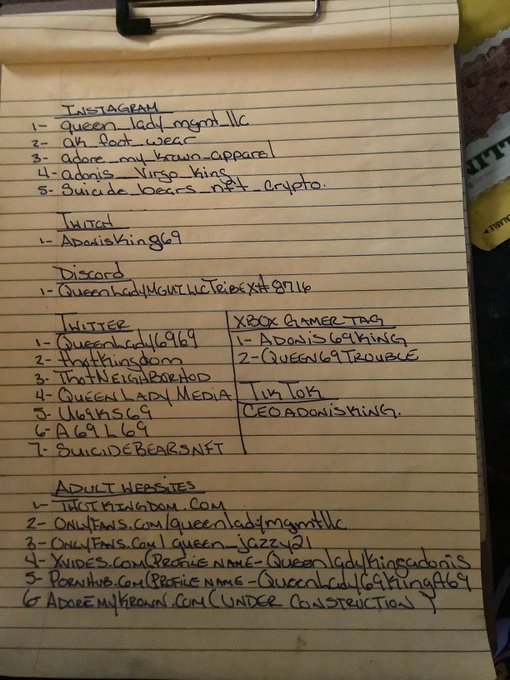 INSTAGRAM
1- queen_lady_mgmt_llc
2- ak_foot_wear
3- adore_my_krown_apparel
4- adonis_Virgo_king
5- Suicide_bears_nft_crypto.
TWITCH
1- ADONISKING69
Discord
1- QueenLadyMGMTLLCTRIBEX#8716
TWITTER
1- QueenLady6969
2- thotkingdom
3- THOTNEIGHBORHOD
4- QUEEN LADY MEDIA
5- U69KS69
6- A69L69
7- SUICIDEBEARSNFT
XBOX GAMER TAG
1- ADONIS69KING
2- QUEEN69TROUBLE
TIKTOK
CEOADONISKING.
ADULT WEBSITES
1- THOTKINGDOM.COM
2- ONLYFANS.COM/queenladymgmtllc
3- ONLYFANS.COM/queen_jazzy21
4- XVIDES.COM(PROFILE NAME-Queenladykingadonis
5- PORNHUB.COM(PROFILE NAME-QueenLady69KingA69
6 ADOREMYKROWN.COM(UNDER CONSTRUCTION)